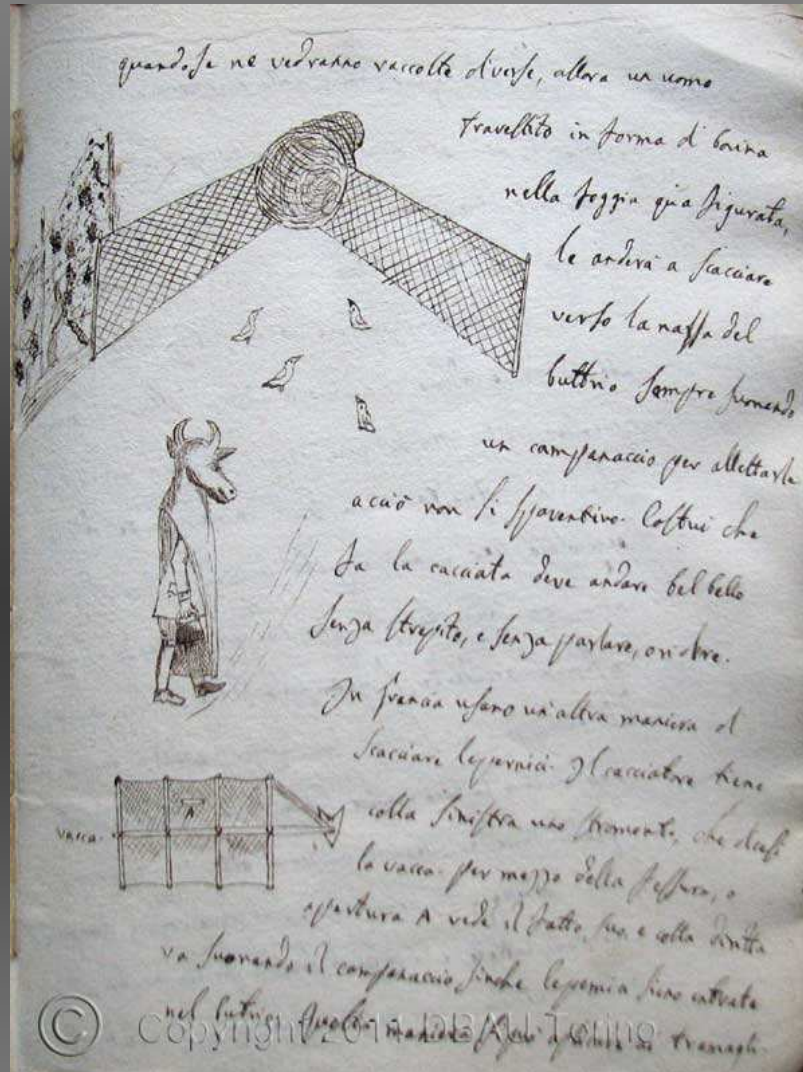 quando se ne vedranno raccolte diverse, allora un uomo
travestito in forma di bovina
nella foggia quà figurata,
le anderà a scacciare
verso la nassa del
buttrio sempre suonando
un campanaccio per allettarle
acciò non si spaventino. Costui che
fa la cacciata deve andare bel bello
senza strepito, e senza parlare, o ridere.
In Francia usano un'altra maniera di
scacciare le pernici. Il cacciatore tiene
colla sinistra uno stromento, che dicesi
la vacca. per mezzo della fessura, o
vacca.
A
apertura A vede il fatto suo e colla diritta
va suonando il campanaccio finche le pernici sieno entrate
nel maniera ai tramagli.
© Copyright 2011 DBAU Torino